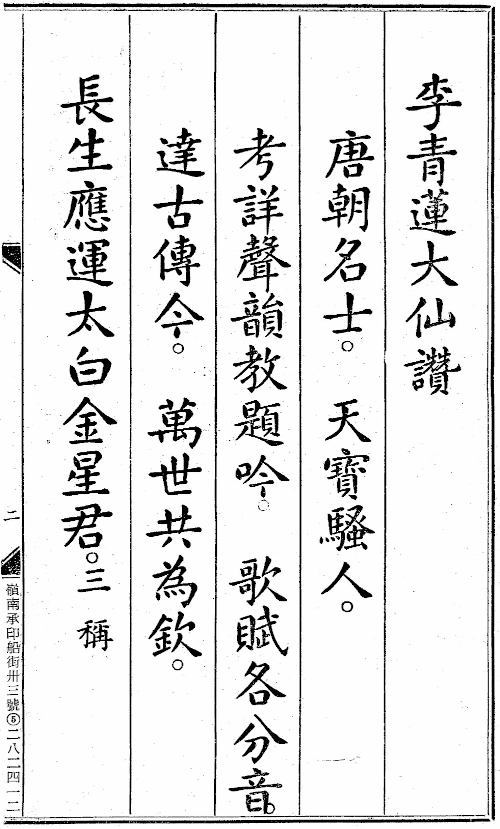 李青蓮大仙讚
唐朝名士。　天寶騷人。
考詳聲韻教題吟。　歌賦各分音。
達古傳今。　萬世共為欽。
長生應運太白金星君。三稱
二
嶺南承印船街卅三號⑤二八二四一二